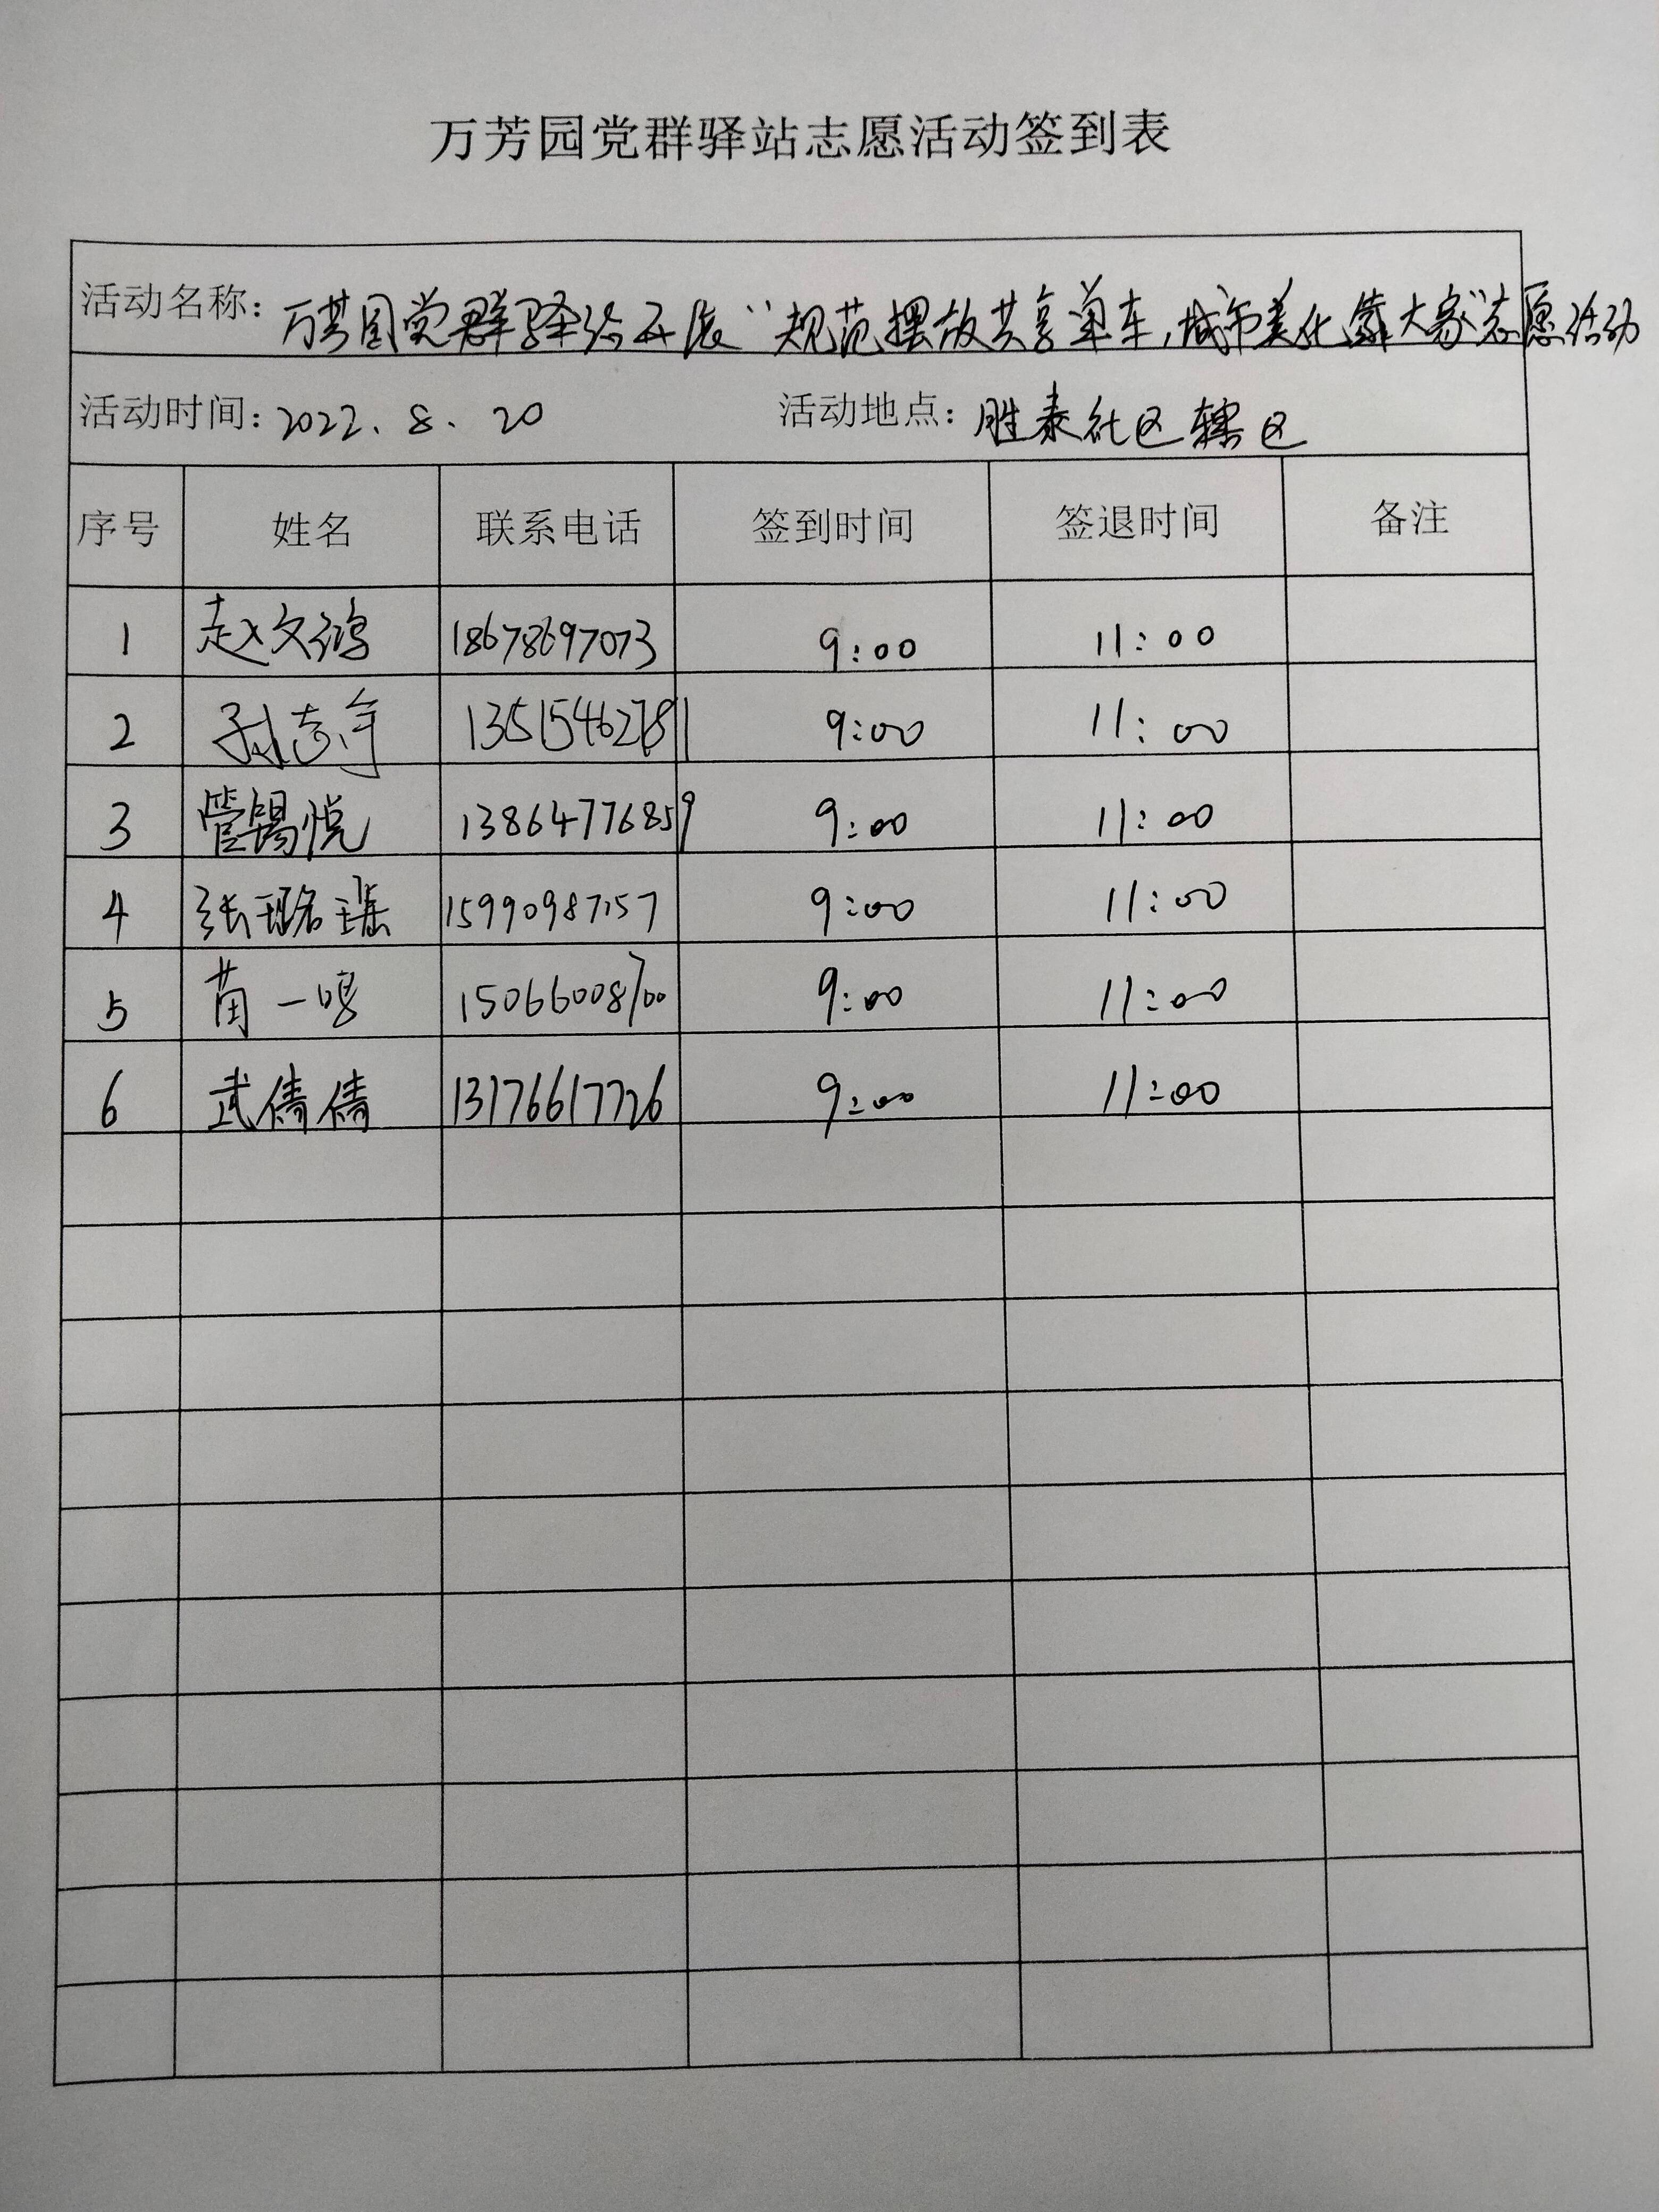 万芳园党群驿站志愿活动签到表
活动名称：万芳园党群驿站开展“规范摆放共享单车，城市美化靠大家”志愿活动
活动时间：2022.8.20 活动地点：胜泰社区辖区
序号 姓名 联系电话 签到时间 签退时间 备注
1 赵文鸿 18678697073 9:00 11:00
2 孙志军 13515462781 9:00 11:00
3 管锡悦 13864776859 9:00 11:00
4 张璐瑶 15990987157 9:00 11:00
5 苗一鸣 15066008700 9:00 11:00
6 武倩倩 13176617726 9:00 11:00